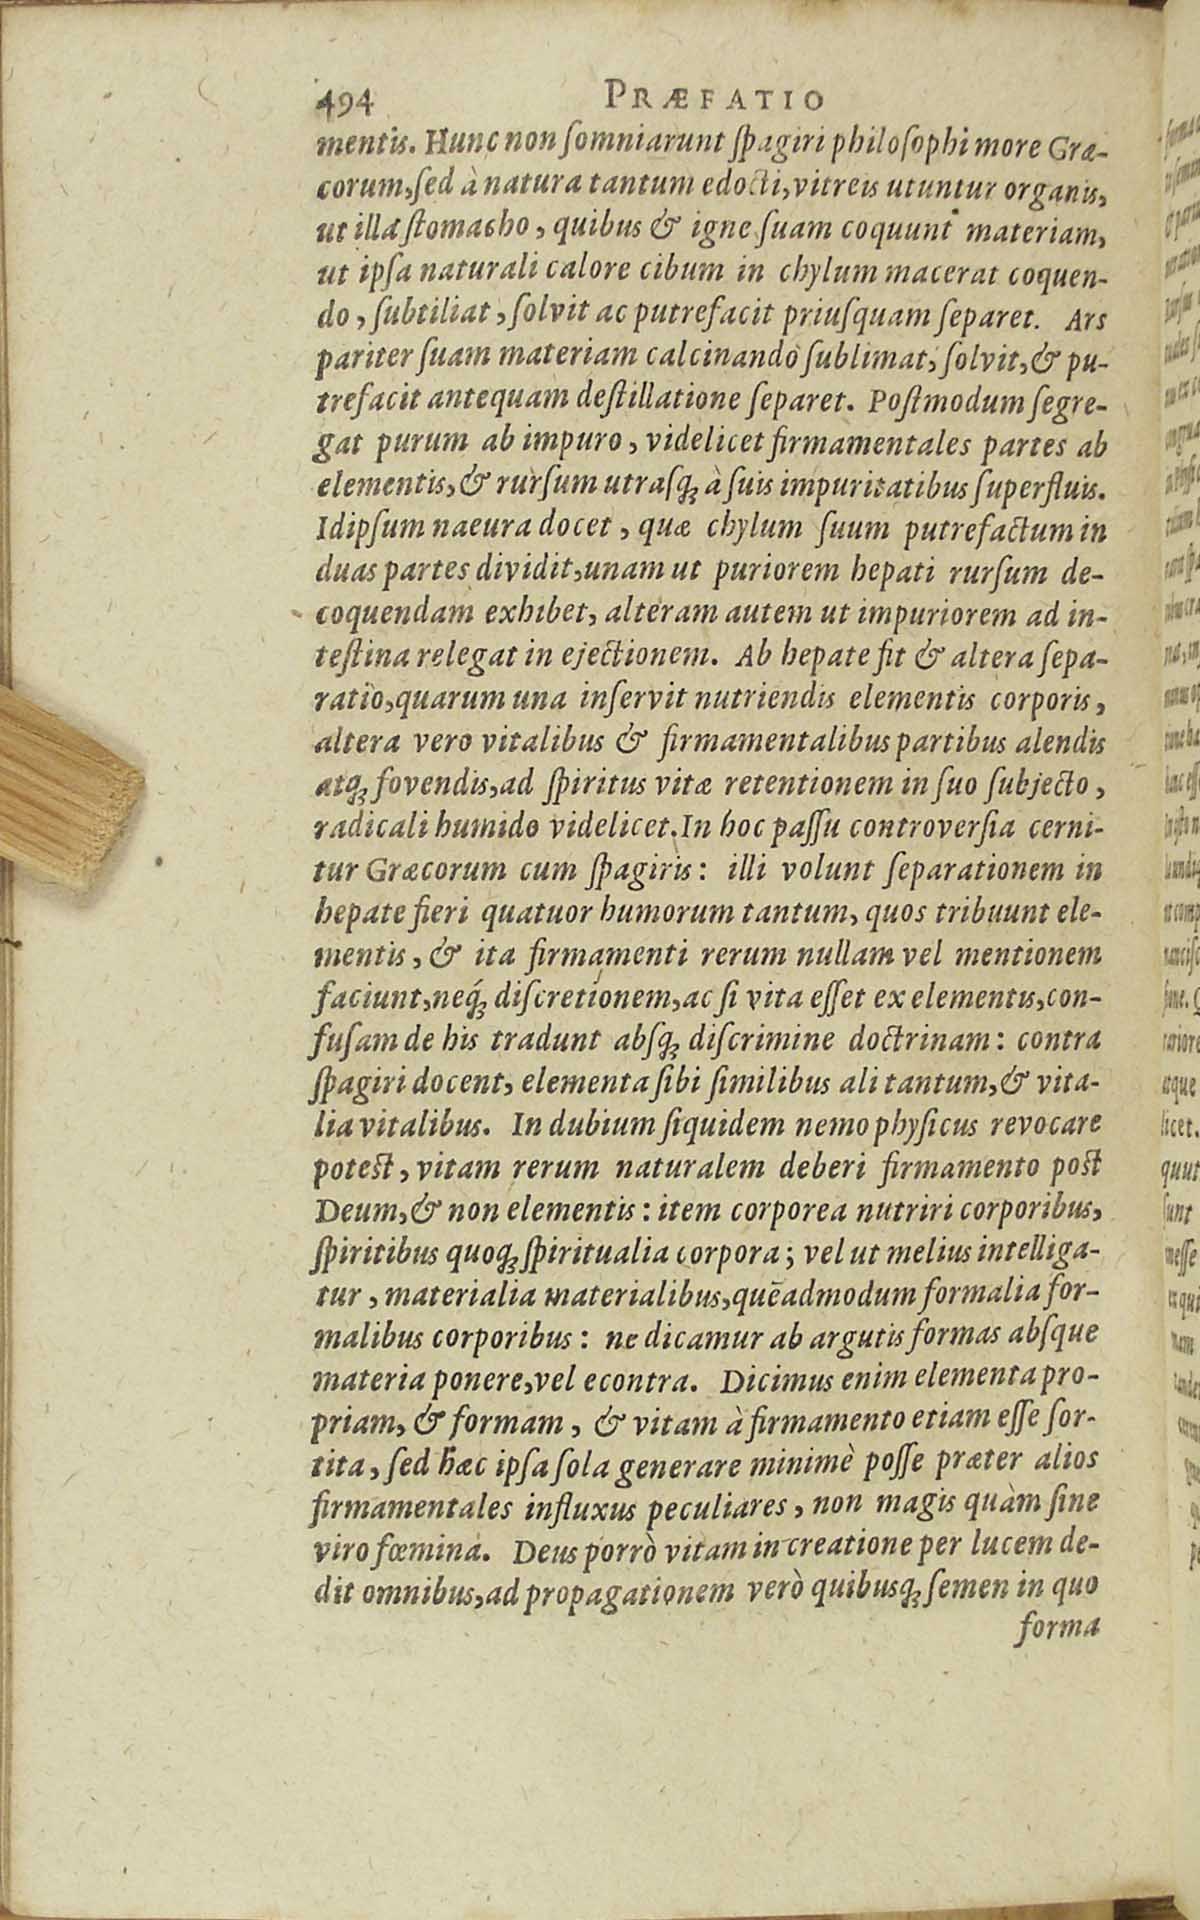 494 PRÆFATIO
mentis. Hunc non ſomniarunt ſpagiri philoſophi more Græ-
corum, ſed à natura tantum edocti, vitreis utuntur organis,
ut illa ſtomacho, quibus & igne ſuam coquunt materiam,
ut ipſa naturali calore cibum in chylum macerat coquen-
do, ſubtiliat, ſolvit ac putrefacit priuſquam ſeparet. Ars
pariter ſuam materiam calcinando ſublimat, ſolvit, & pu-
trefacit antequam deſtillatione ſeparet. Poſtmodum ſegre-
gat purum ab impuro, videlicet firmamentales partes ab
elementis, & rurſum utraſq; à ſuis impuritatibus ſuperfluis.
Idipſum naeura docet, quæ chylum ſuum putrefactum in
duas partes dividit, unam ut puriorem hepati rurſum de-
coquendam exhibet, alteram autem ut impuriorem ad in-
teſtina relegat in ejectionem. Ab hepate fit & altera ſepa-
ratio, quarum una inſervit nutriendis elementis corporis,
altera vero vitalibus & firmamentalibus partibus alendis
atq; fovendis, ad ſpiritus vitæ retentionem in ſuo ſubjecto,
radicali humido videlicet. In hoc paſſu controverſia cerni-
tur Græcorum cum ſpagiris: illi volunt ſeparationem in
hepate fieri quatuor humorum tantum, quos tribuunt ele-
mentis, & ita firmamenti rerum nullam vel mentionem
faciunt, neq́; diſcretionem, ac ſi vita eſſet ex elementis, con-
fuſam de his tradunt abſq; diſcrimine doctrinam: contra
ſpagiri docent, elementa ſibi ſimilibus ali tantum, & vita-
lia vitalibus. In dubium ſiquidem nemo phyſicus revocare
poteſt, vitam rerum naturalem deberi firmamento poſt
Deum, & non elementis: item corporea nutriri corporibus,
ſpiritibus quoq; ſpiritualia corpora; vel ut melius intelliga-
tur, materialia materialibus, quēadmodum formalia for-
malibus corporibus: ne dicamur ab argutis formas abſque
materia ponere, vel econtra. Dicimus enim elementa pro-
priam, & formam, & vitam à firmamento etiam eſſe ſor-
tita, ſed hæc ipſa ſola generare minimè poſſe præter alios
firmamentales influxus peculiares, non magis quàm ſine
viro fœmina. Deus porrò vitam in creatione per lucem de-
dit omnibus, ad propagationem verò quibuſq; ſemen in quo
forma